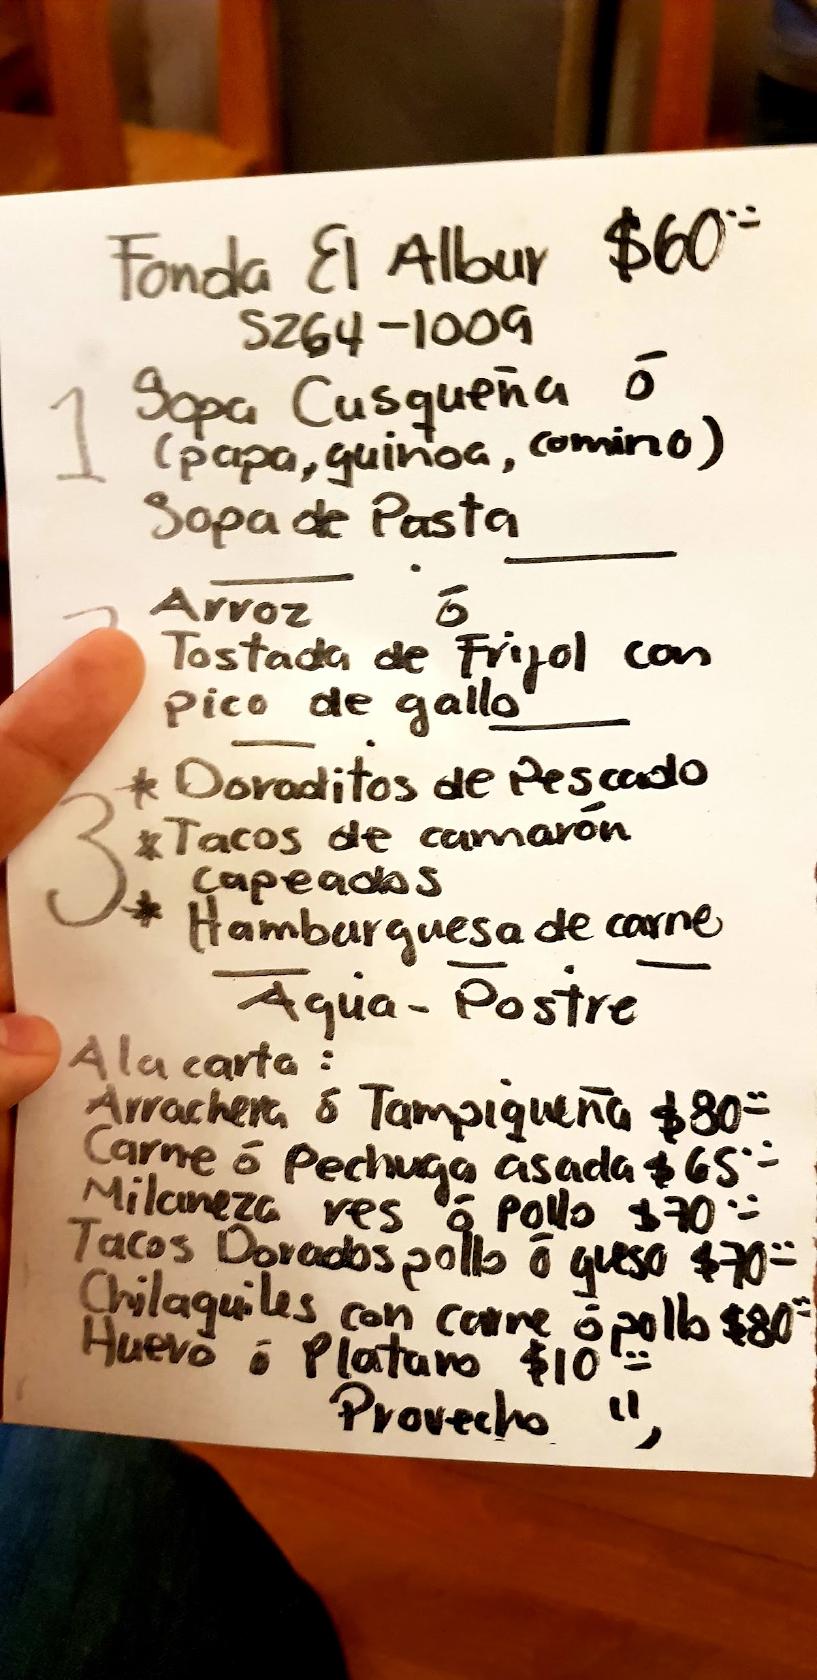 Fonda El Albur $60.=
5264-1009
1 Sopa Cusqueña ó
(papa, quinoa, comino)
Sopa de Pasta
Arroz ó
Tostada de Frijol con
pico de gallo
* Doraditos de Pescado
3 * Tacos de camarón
capeados
* Hamburguesa de carne
Agua - Postre
A la carta :
Arrachera ó Tampiqueña $80.=
Carne ó Pechuga asada $65.=
Milaneza res ó pollo $70.=
Tacos Dorados pollo ó queso $70.=
Chilaquiles con carne ó pollo $80.=
Huevo ó Platano $10.=
Provecho